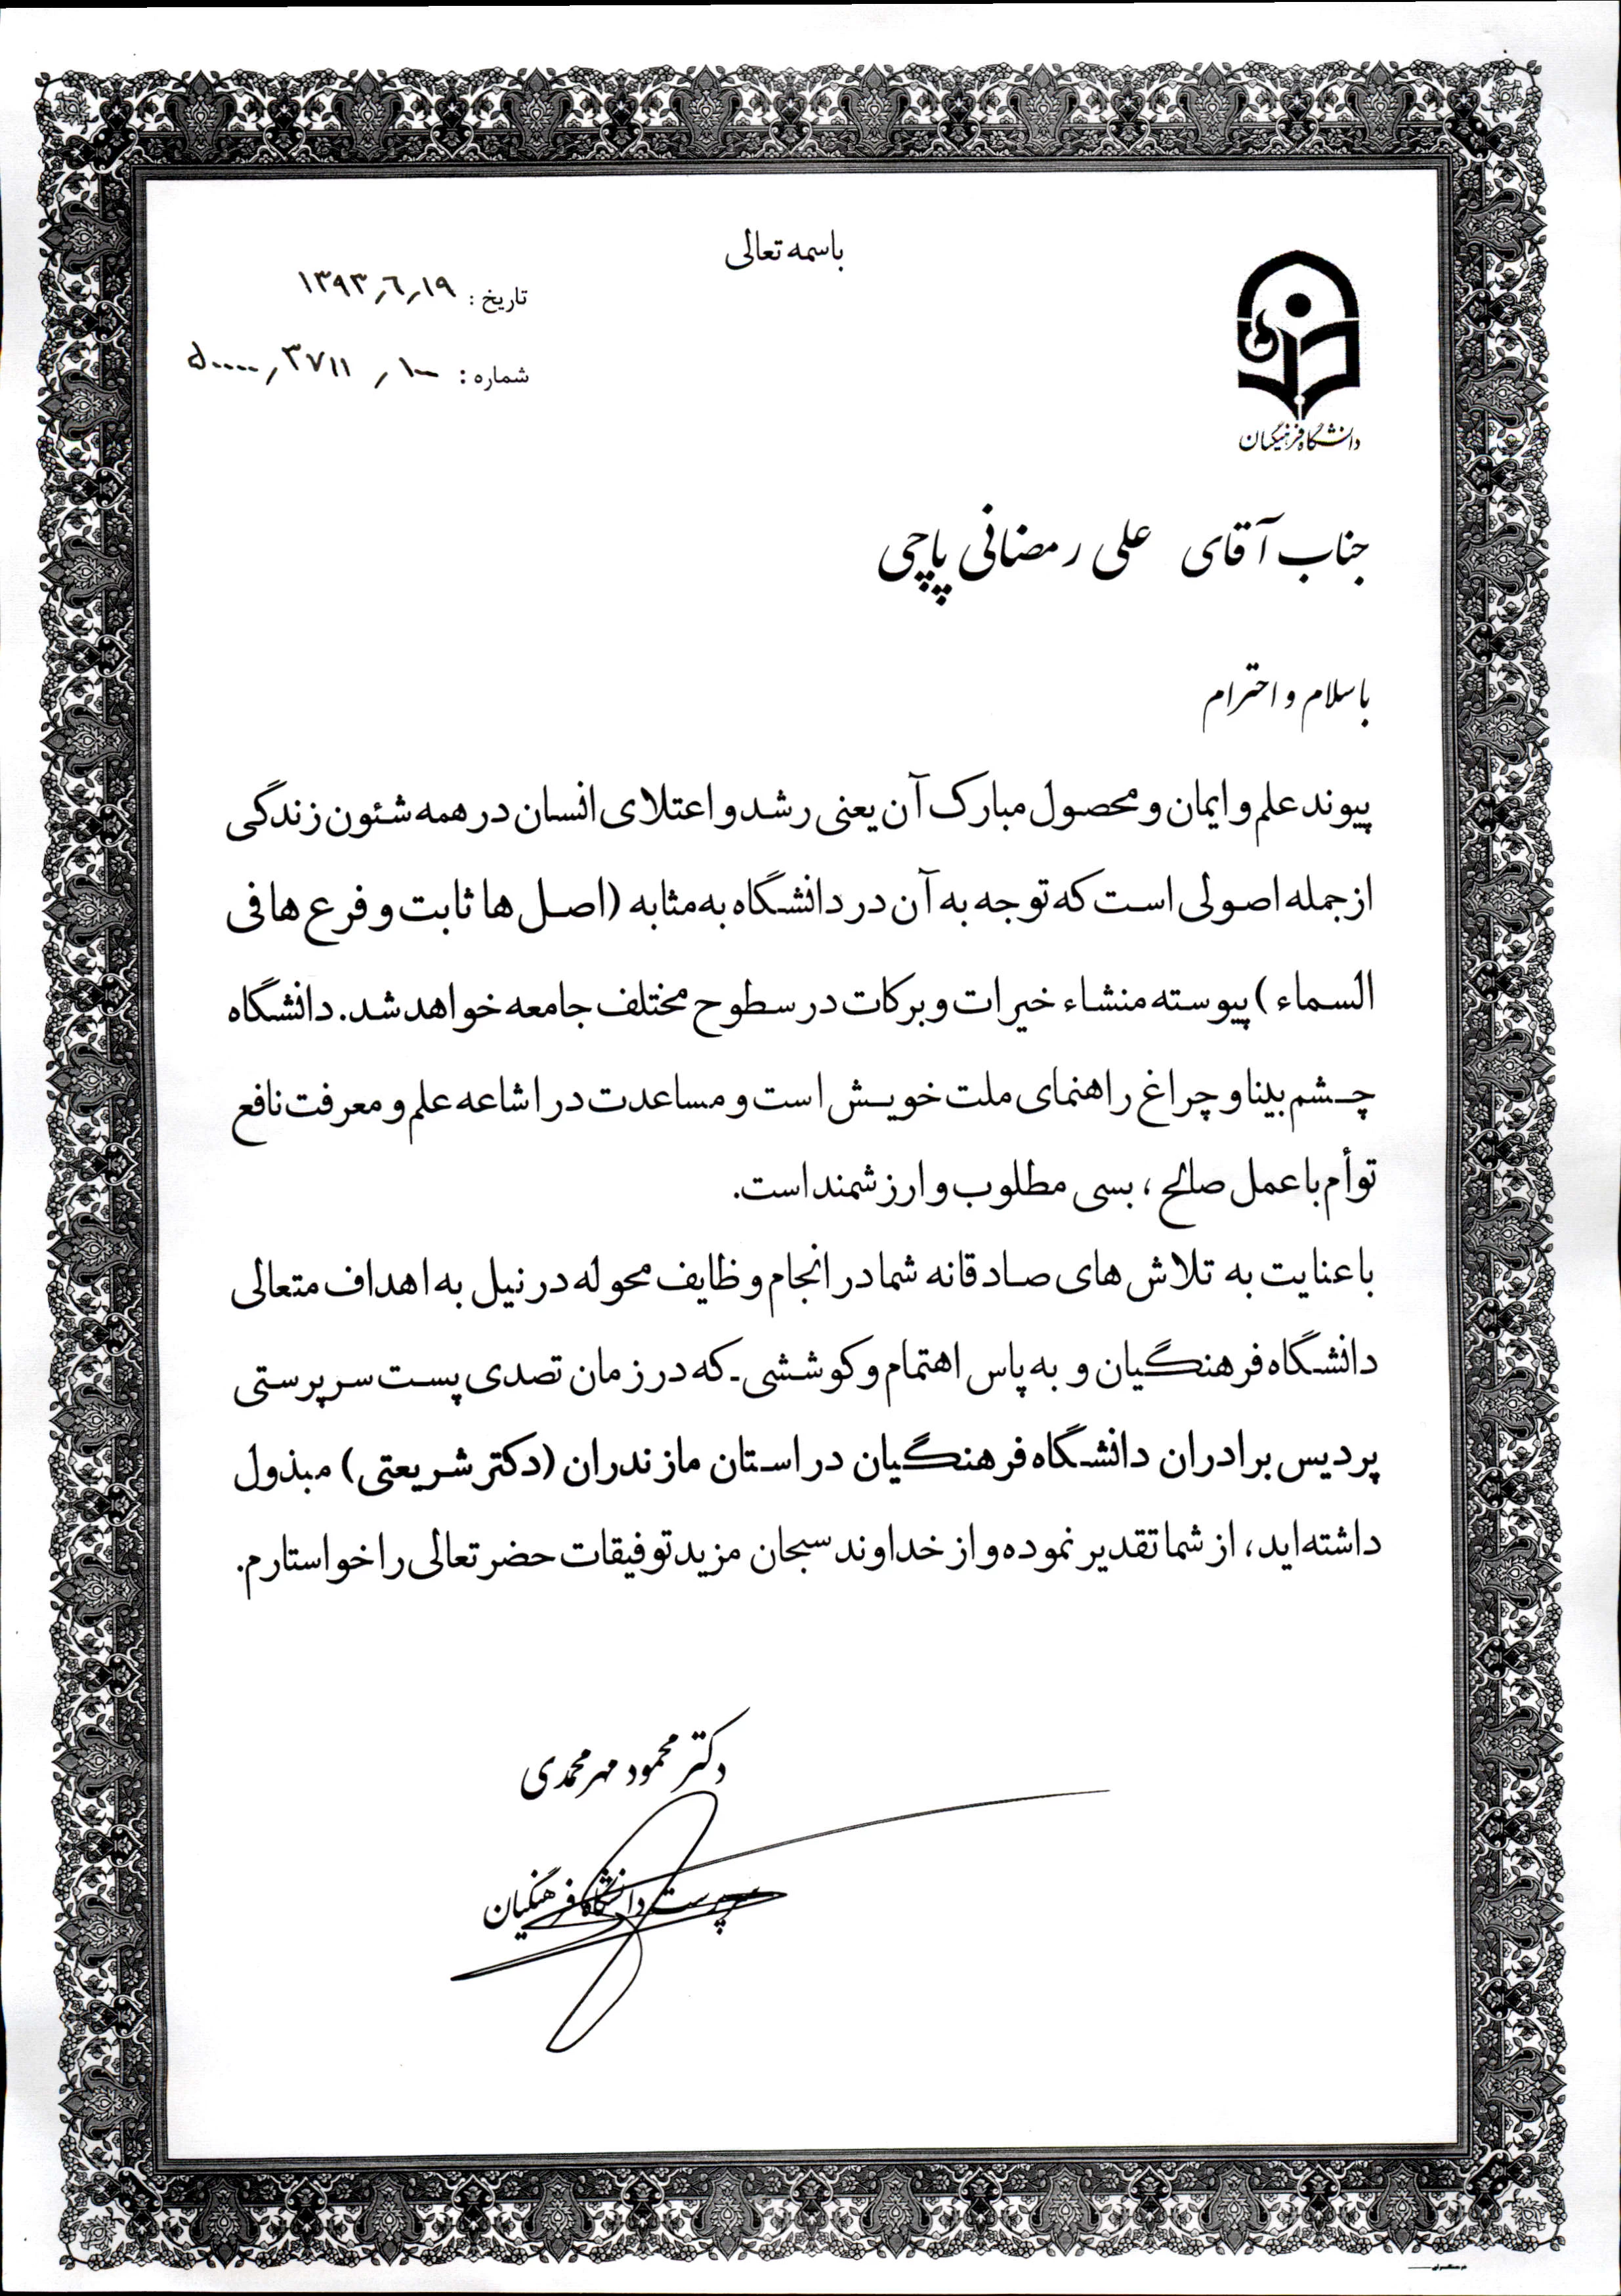 باسمه تعالی
تاریخ : ۱۳۹۳٫۶٫۱۹
شماره : ۵۰۰۰۰٫۳۷۱۱٫۱۰۰
دانشگاه فرهنگیان
جناب آقای علی رمضانی پاچی
با سلام و احترام
پیوند علم و ایمان و محصول مبارک آن یعنی رشد و اعتلای انسان در همه شئون زندگی
از جمله اصولی است که توجه به آن در دانشگاه به مثابه (اصل ها ثابت و فرع ها فی
السماء ) پیوسته منشاء خیرات و برکات در سطوح مختلف جامعه خواهد شد. دانشگاه
چشم بینا و چراغ راهنمای ملت خویش است و مساعدت در اشاعه علم و معرفت نافع
توأم با عمل صالح ، بسی مطلوب و ارزشمند است.
با عنایت به تلاش های صادقانه شما در انجام وظایف محوله در نیل به اهداف متعالی
دانشگاه فرهنگیان و به پاس اهتمام و کوششی که در زمان تصدی پست سرپرستی
پردیس برادران دانشگاه فرهنگیان در استان مازندران (دکتر شریعتی) مبذول
داشته اید، از شما تقدیر نموده و از خداوند سبحان مزید توفیقات حضرتعالی را خواستارم.
دکتر محمود مهرمحمدی
سرپرست دانشگاه فرهنگیان